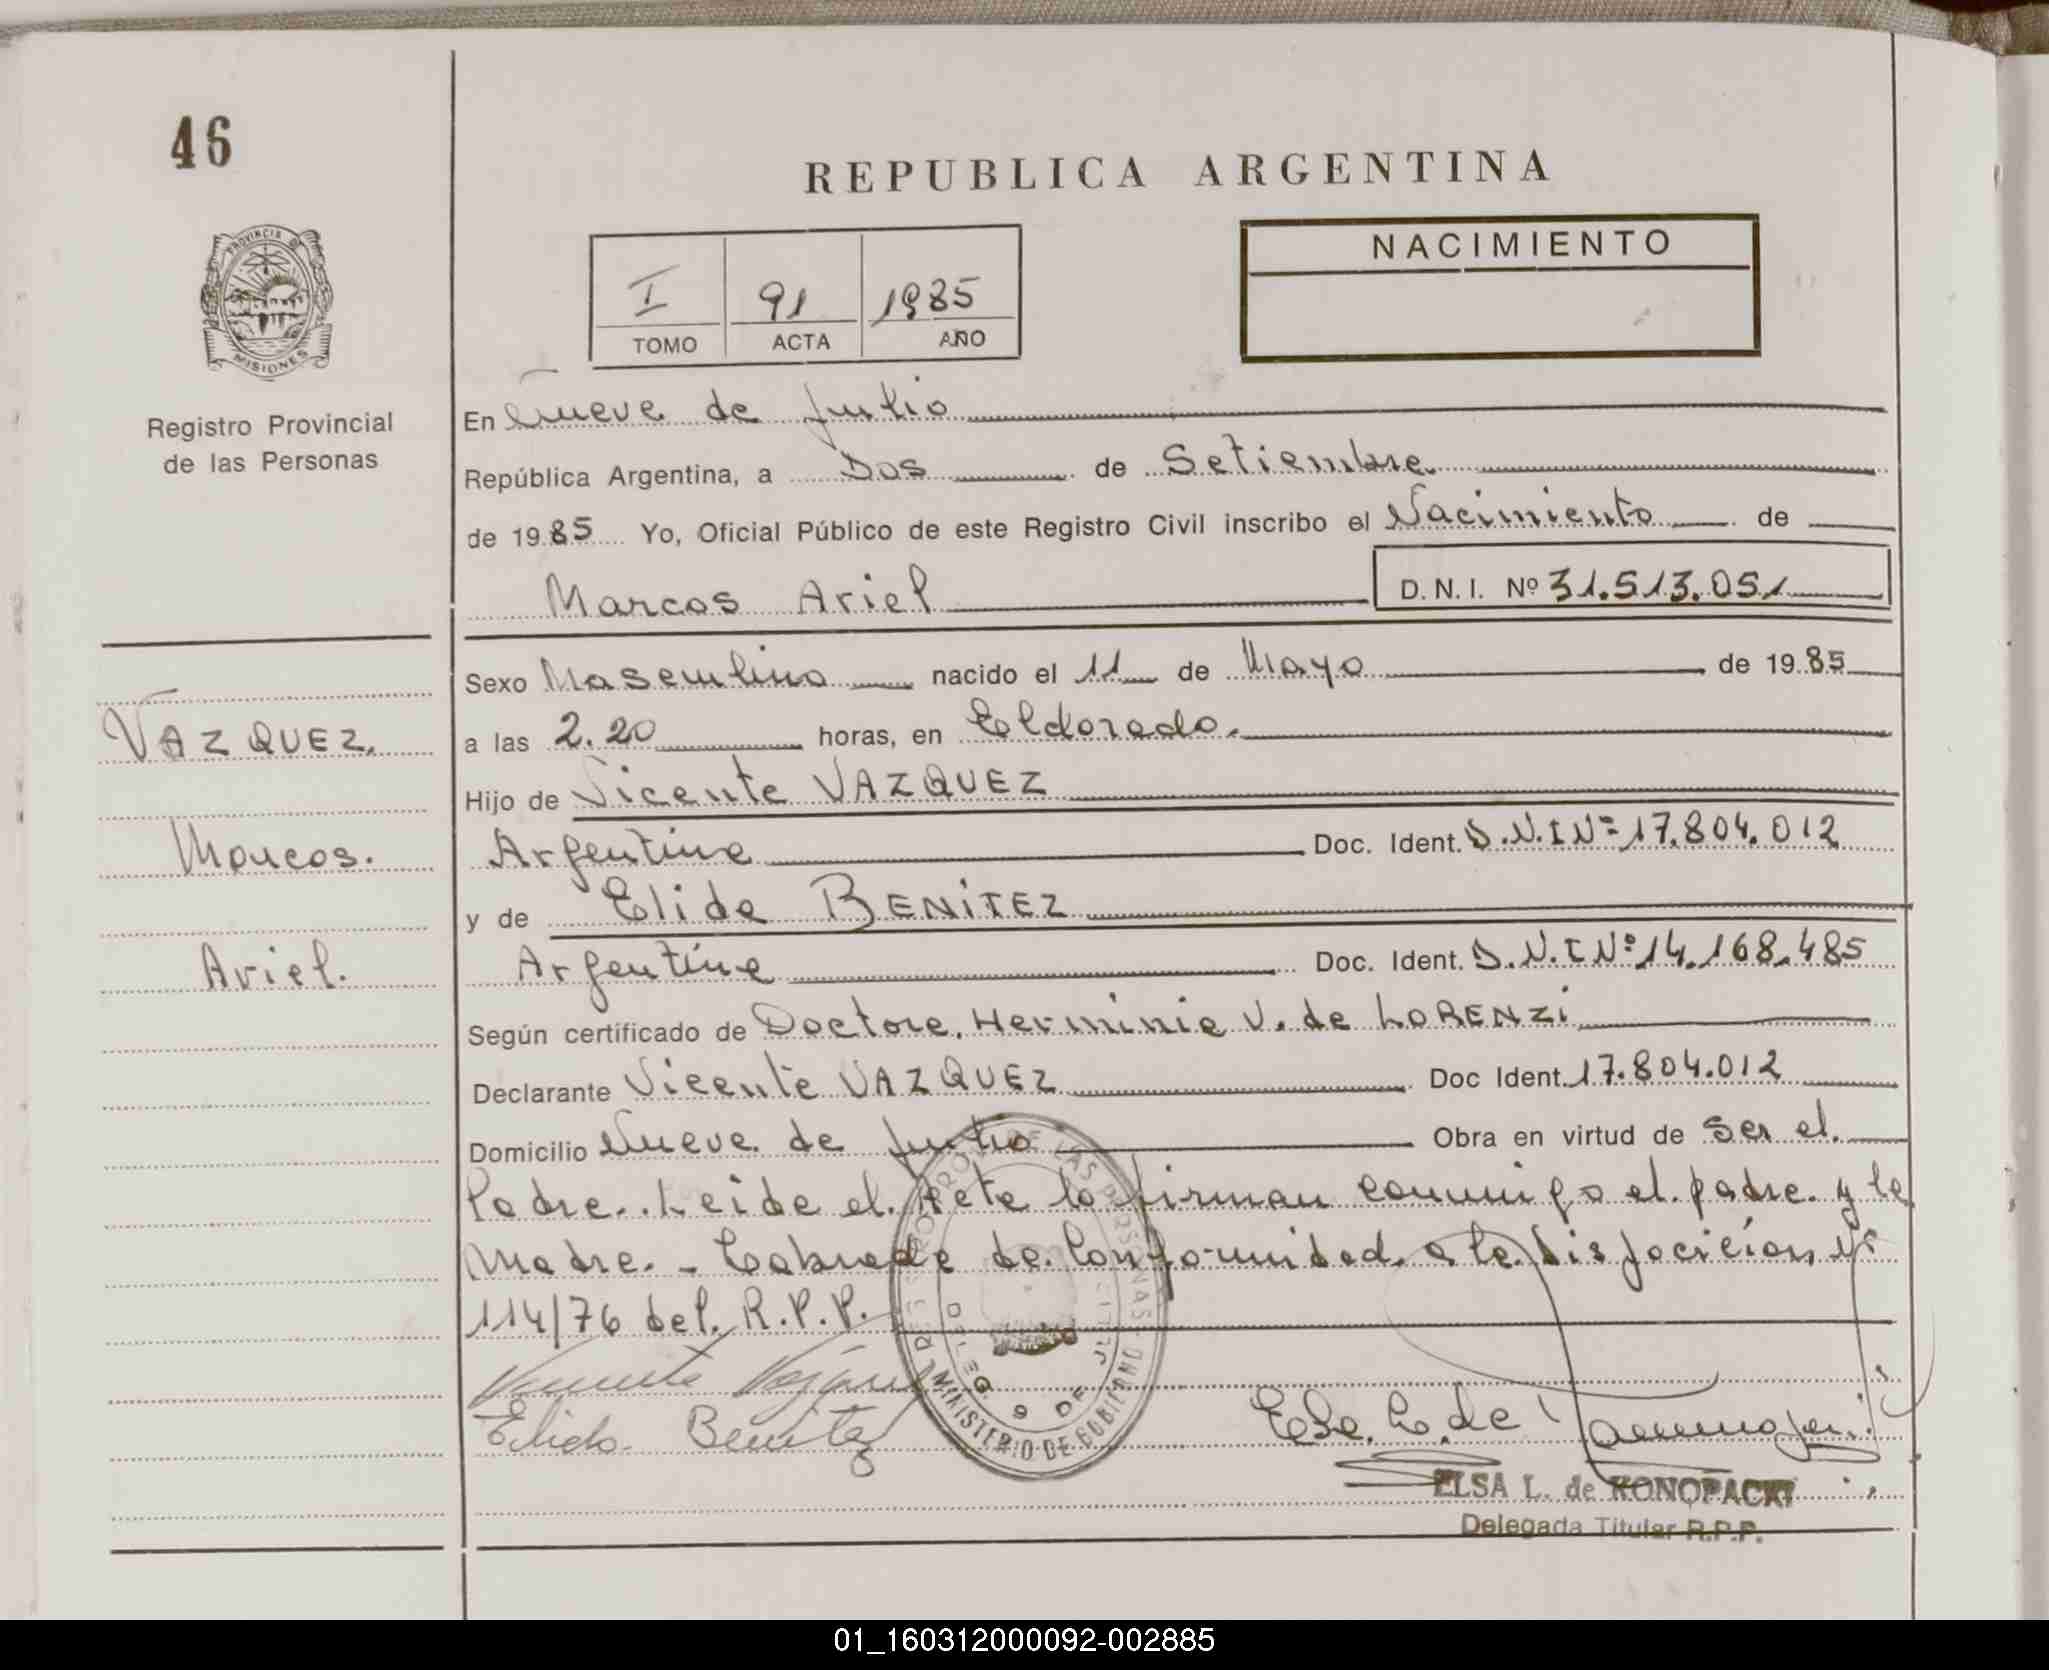 46
REPUBLICA ARGENTINA
PROVINCIA DE
MISIONES
Registro Provincial
de las Personas
I 91 1985
TOMO ACTA AÑO
NACIMIENTO
En Nueve de Julio
República Argentina, a Dos de Setiembre
de 1985 Yo, Oficial Público de este Registro Civil inscribo el Nacimiento de
Marcos Ariel D.N.I. Nº 31.513.051
Sexo Masculino nacido el 11 de Mayo de 1985
a las 2.20 horas, en Eldorado.
Hijo de Vicente VAZQUEZ
Argentina Doc. Ident. D.N.I Nº 17.804.012
y de Elida BENITEZ
Argentina Doc. Ident. D.N.I Nº 14.168.485
Según certificado de Doctora. Herminia V. de LORENZI
Declarante Vicente VAZQUEZ Doc Ident. 17.804.012
Domicilio Nueve de Julio Obra en virtud de Ser el
Padre. Leida el Acta lo firman conmigo el padre y la
Madre. - Labrada de Conformidad a la Disposición Nº
114/76 del R.P.P.
VAZQUEZ.
Marcos.
Ariel.
Elida Benitez
MINISTERIO DE GOBIERNO
DELEG. 9 DE JULIO
ELSA L. de KONOPACKI
Delegada Titular R.P.P.
01_160312000092-002885